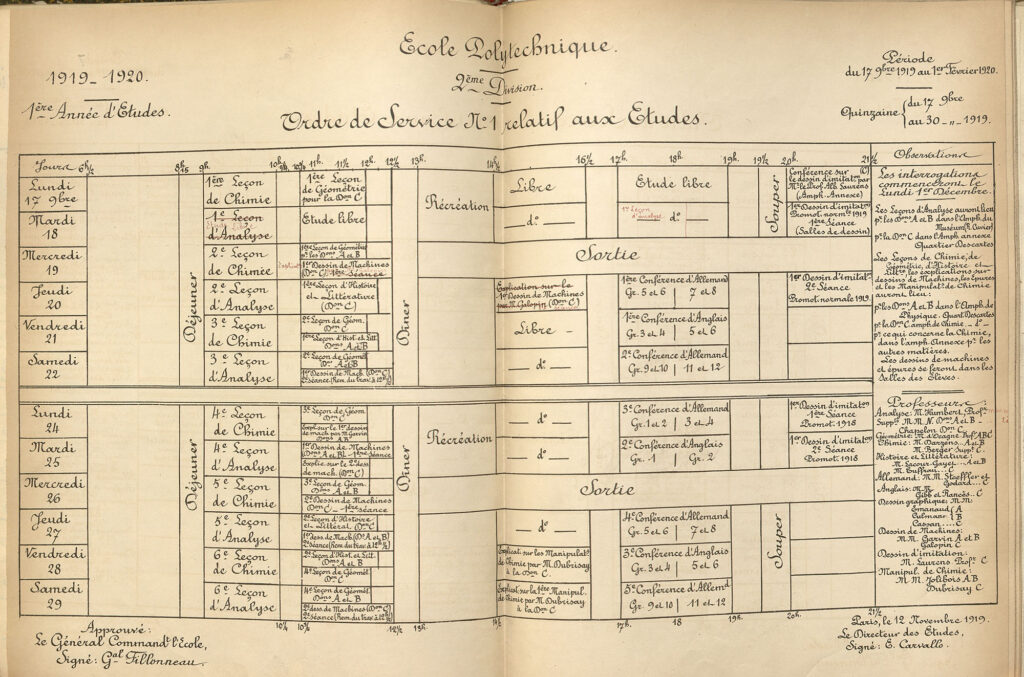 Ecole Polytechnique.
1919_1920.
2ème Division.
Période
du 17 9bre 1919 au 1er Février 1920.
1ère Année d'Etudes.
Ordre de Service No 1 relatif aux Etudes.
Quinzaine { du 17 9bre
au 30 -"- 1919.
Jours 6h½ 8h 9h. 11h. 11½ 12h. 12½ 13h. 16½ 17h. 18h. 19h. 19½ 20h. 21½ Observations
Lundi
17 9bre
1ère Leçon
de Chimie
1ère Leçon
de Géométrie
pour la Don C
Récréation
Libre
Etude libre
Conférence sur
le dessin d'imitatn par
(Amph. Annexe)
Mardi
18
1e Leçon
d'Analyse
Etude libre
do
1e Leçon
d'analyse
do
1er Dessin d'imitatn
Promot. normle 1919
1ère Séance
(Salles de dessin)
Mercredi
19
2e Leçon
de Chimie
1ère Leçon de Géométrie
pr les Dons A et B
1er Dessin de Machines
(Don C) 1ère Séance
Sortie
Jeudi
20
2e Leçon
d'Analyse
1ère Leçon d'Histoire
et Littérature
(Don C)
Explication sur le
1er Dessin de Machines
par M. Galopin (Don C)
1ère Conférence d'Allemand
Gr. 5 et 6 | 7 et 8
1er Dessin d'imitatn
2e Séance
Promot. normale 1919
Vendredi
21
3e Leçon
de Chimie
2e Leçon de Géom.
Don C
1ère Leçon d'Hist. et Litt.
Dons A et B
Libre
1ère Conférence d'Anglais
Gr. 3 et 4 | 5 et 6
Samedi
22
3e Leçon
d'Analyse
2e Leçon de Géomét
Dons A et B
1er Dessin de Mach. (Don C)
2e séance (Rem. du trav. à 12h½)
do
2e Conférence d'Allemand
Gr. 9 et 10 | 11 et 12
Déjeuner
Diner
Souper
Les interrogations
commenceront le
Lundi 1er Décembre.
Les Leçons d'Analyse auront lieu
pr les Dons A et B dans l'Amph. du
Muséum (R. Cuvier)
pr la Don C dans l'Amph. annexe
Quartier Descartes
Les Leçons de Chimie, de
Géométrie, d'Histoire et
Littre, les explications sur
dessin de Machines, les épures
et les Manipulatns de Chimie
auront lieu:
pr les Dons A et B dans l'Amph. de
Physique. Quart Descartes
pr la Don C amph. de Chimie _ do _
pr ce qui concerne la Chimie,
dans l'amph. Annexe pr les
autres matières.
Les dessins de machines
et épures se feront dans les
Salles des Elèves.
Lundi
24
4e Leçon
de Chimie
3e Leçon de Géom.
Don C
Expl. sur le 1er dessin
de mach par M. Garvin
Dons AB
Récréation
do
3e Conférence d'Allemand
Gr. 1 et 2 | 3 et 4
1er Dessin d'imitatn
1ère Séance
Promot. 1918
Mardi
25
4e Leçon
d'Analyse
1er Dessin de Machines
(Dons A et B) - 1ère Séance
Explic. sur le 2e dess.
de mach. (Don C)
do
2e Conférence d'Anglais
Gr. 1 | Gr. 2
1er Dessin d'imitatn
2e Séance
Promot. 1918
Mercredi
26
5e Leçon
de Chimie
3e Leçon de Géom.
Dons A et B
2e Dessin de Machines
Don C - 1ère séance
Sortie
Jeudi
27
5e Leçon
d'Analyse
2e Leçon d'Histoire
et Littérat. (Don C)
1er dess. de Mach. (Dons A et B)
2e séance (Rem. du trav. à 12h½)
do
4e Conférence d'Allemand
Gr. 5 et 6 | 7 et 8
Vendredi
28
6e Leçon
de Chimie
2e Leçon d'Hist. et Litt.
Dons A et B
4e Leçon de Géomét.
Don C
Explicat. sur les Manipulatns
de Chimie par M. Dubrisay
à la Don C.
3e Conférence d'Anglais
Gr. 3 et 4 | 5 et 6
Samedi
29
6e Leçon
d'Analyse
4e Leçon de Géomét.
Dons A et B
2e dess. de Machines (Don C)
2e séance (Rem. du trav. à 12h½)
Explicat. sur la 1ère Manipul.
de Chimie par M. Dubrisay
à la Don C
5e Conférence d'Allemd
Gr. 9 et 10 | 11 et 12
Déjeuner
Diner
Souper
Professeurs:
Analyse: M. Humbert, Profr
Chapelon Don C
Géométrie: M. d'Ocagne Profr ABC
Chimie: M. Darzens, A et B
M. Berger
Histoire et Littérature:
M. Lacour-Gayet... A et B
M. Tuffrau... C
Allemand: M.M. Stoeffler et
Godard... C
Anglais: M.M.
Gibb et Rancès.. C
Dessin graphique: M.M.
Emanaud (A
Culmann (B
Cassan.... C
Dessin de Machines:
M.M. Garvin A et B
Galopin C
Dessin d'imitation:
M. Laurens Profr C
Manipul. de Chimie:
M.M. Jolibois A B
Dubrisay C
12½ 13h. 17h. 18 19h. 20h. 21½
Approuvé:
Le Général Commandt l'Ecole,
Signé: Gal Fillonneau.
Paris, le 12 Novembre 1919.
Le Directeur des Etudes,
Signé: E. Carvallo.